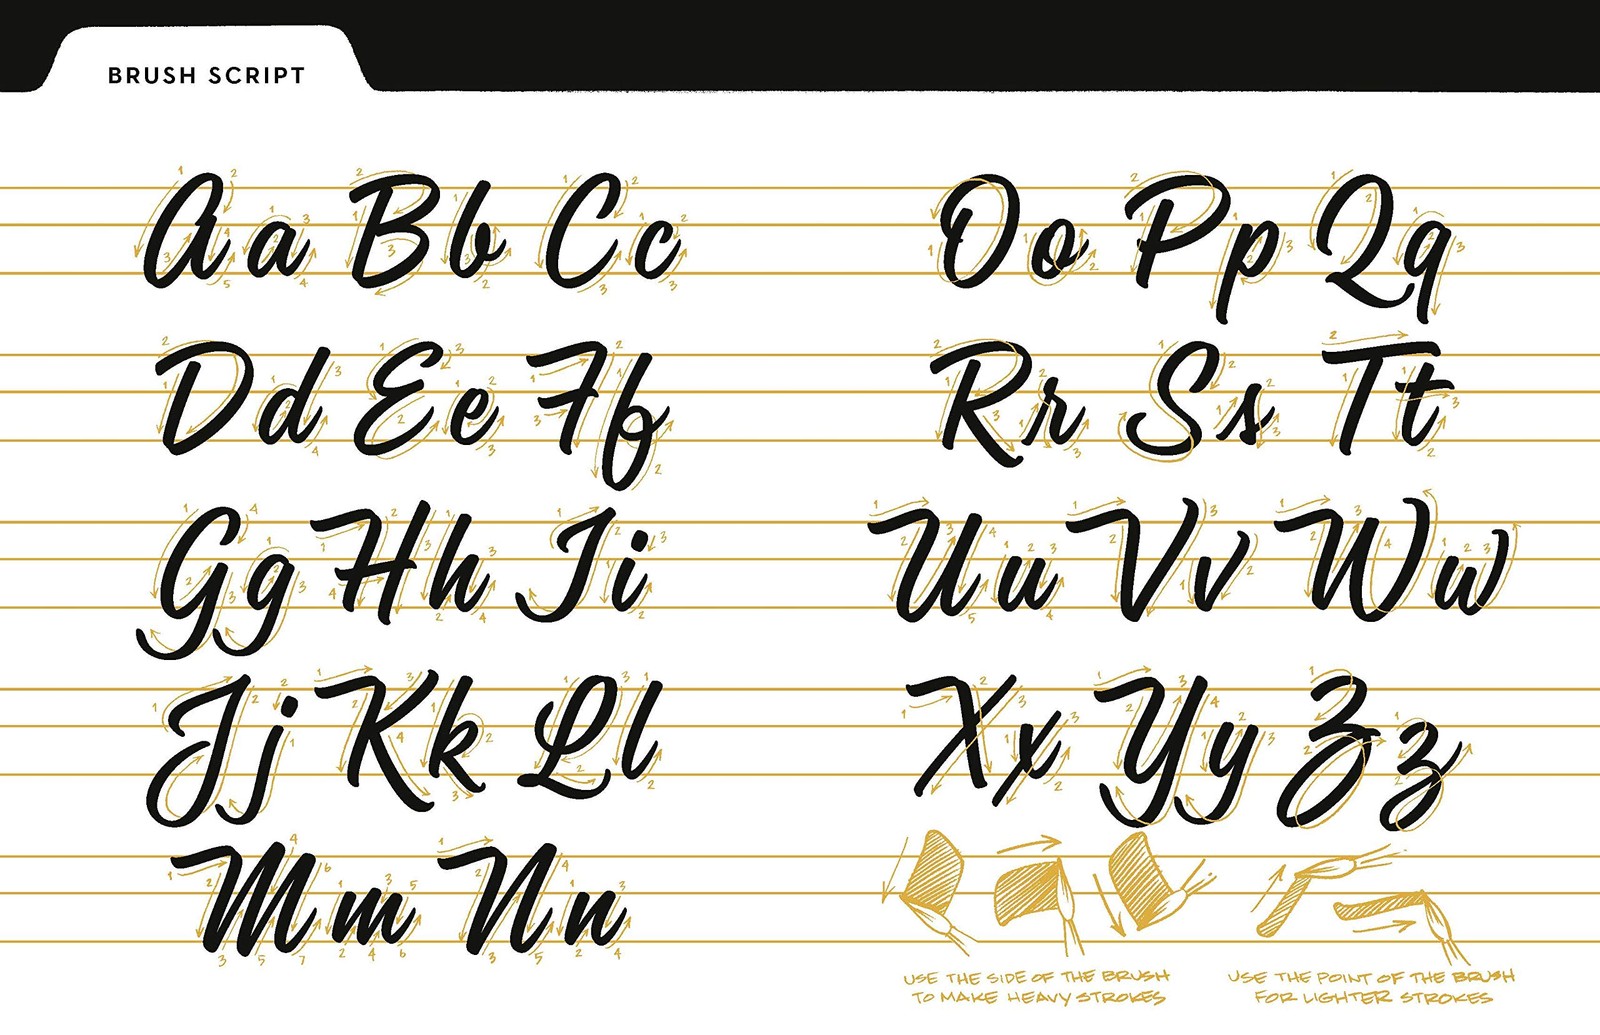 BRUSH SCRIPT
Aa Bb Cc
Dd Ee Ff
Gg Hh Ii
Jj Kk Ll
Mm Nn
Oo Pp Qq
Rr Ss Tt
Uu Vv Ww
Xx Yy Zz
USE THE SIDE OF THE BRUSH
TO MAKE HEAVY STROKES
USE THE POINT OF THE BRUSH
FOR LIGHTER STROKES